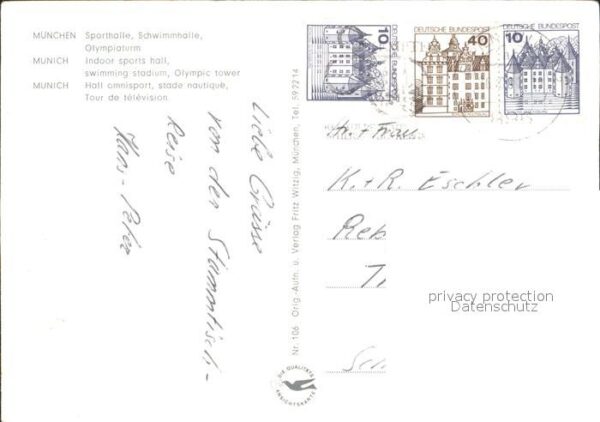 MÜNCHEN Sporthalle, Schwimmhalle,
Olympiaturm
MUNICH Indoor sports hall,
swimming stadium, Olympic tower
MUNICH Hall omnisport, stade nautique,
Tour de télévision.
Liebe Grüsse
von der Stammtisch-
Reise
Hans-Peter
Nr. 106 Orig.-Aufn. u. Verlag Fritz Witzig, München, Tel. 59 22 14
DIE QUALITÄTS
ANSICHTSKARTE
10
DEUTSCHE BUNDESPOST
DEUTSCHE BUNDESPOST
40
DEUTSCHE BUNDESPOST
10
Hr. + Frau
K. + R. Eschler
Reb
T
Sch
privacy protection
Datenschutz